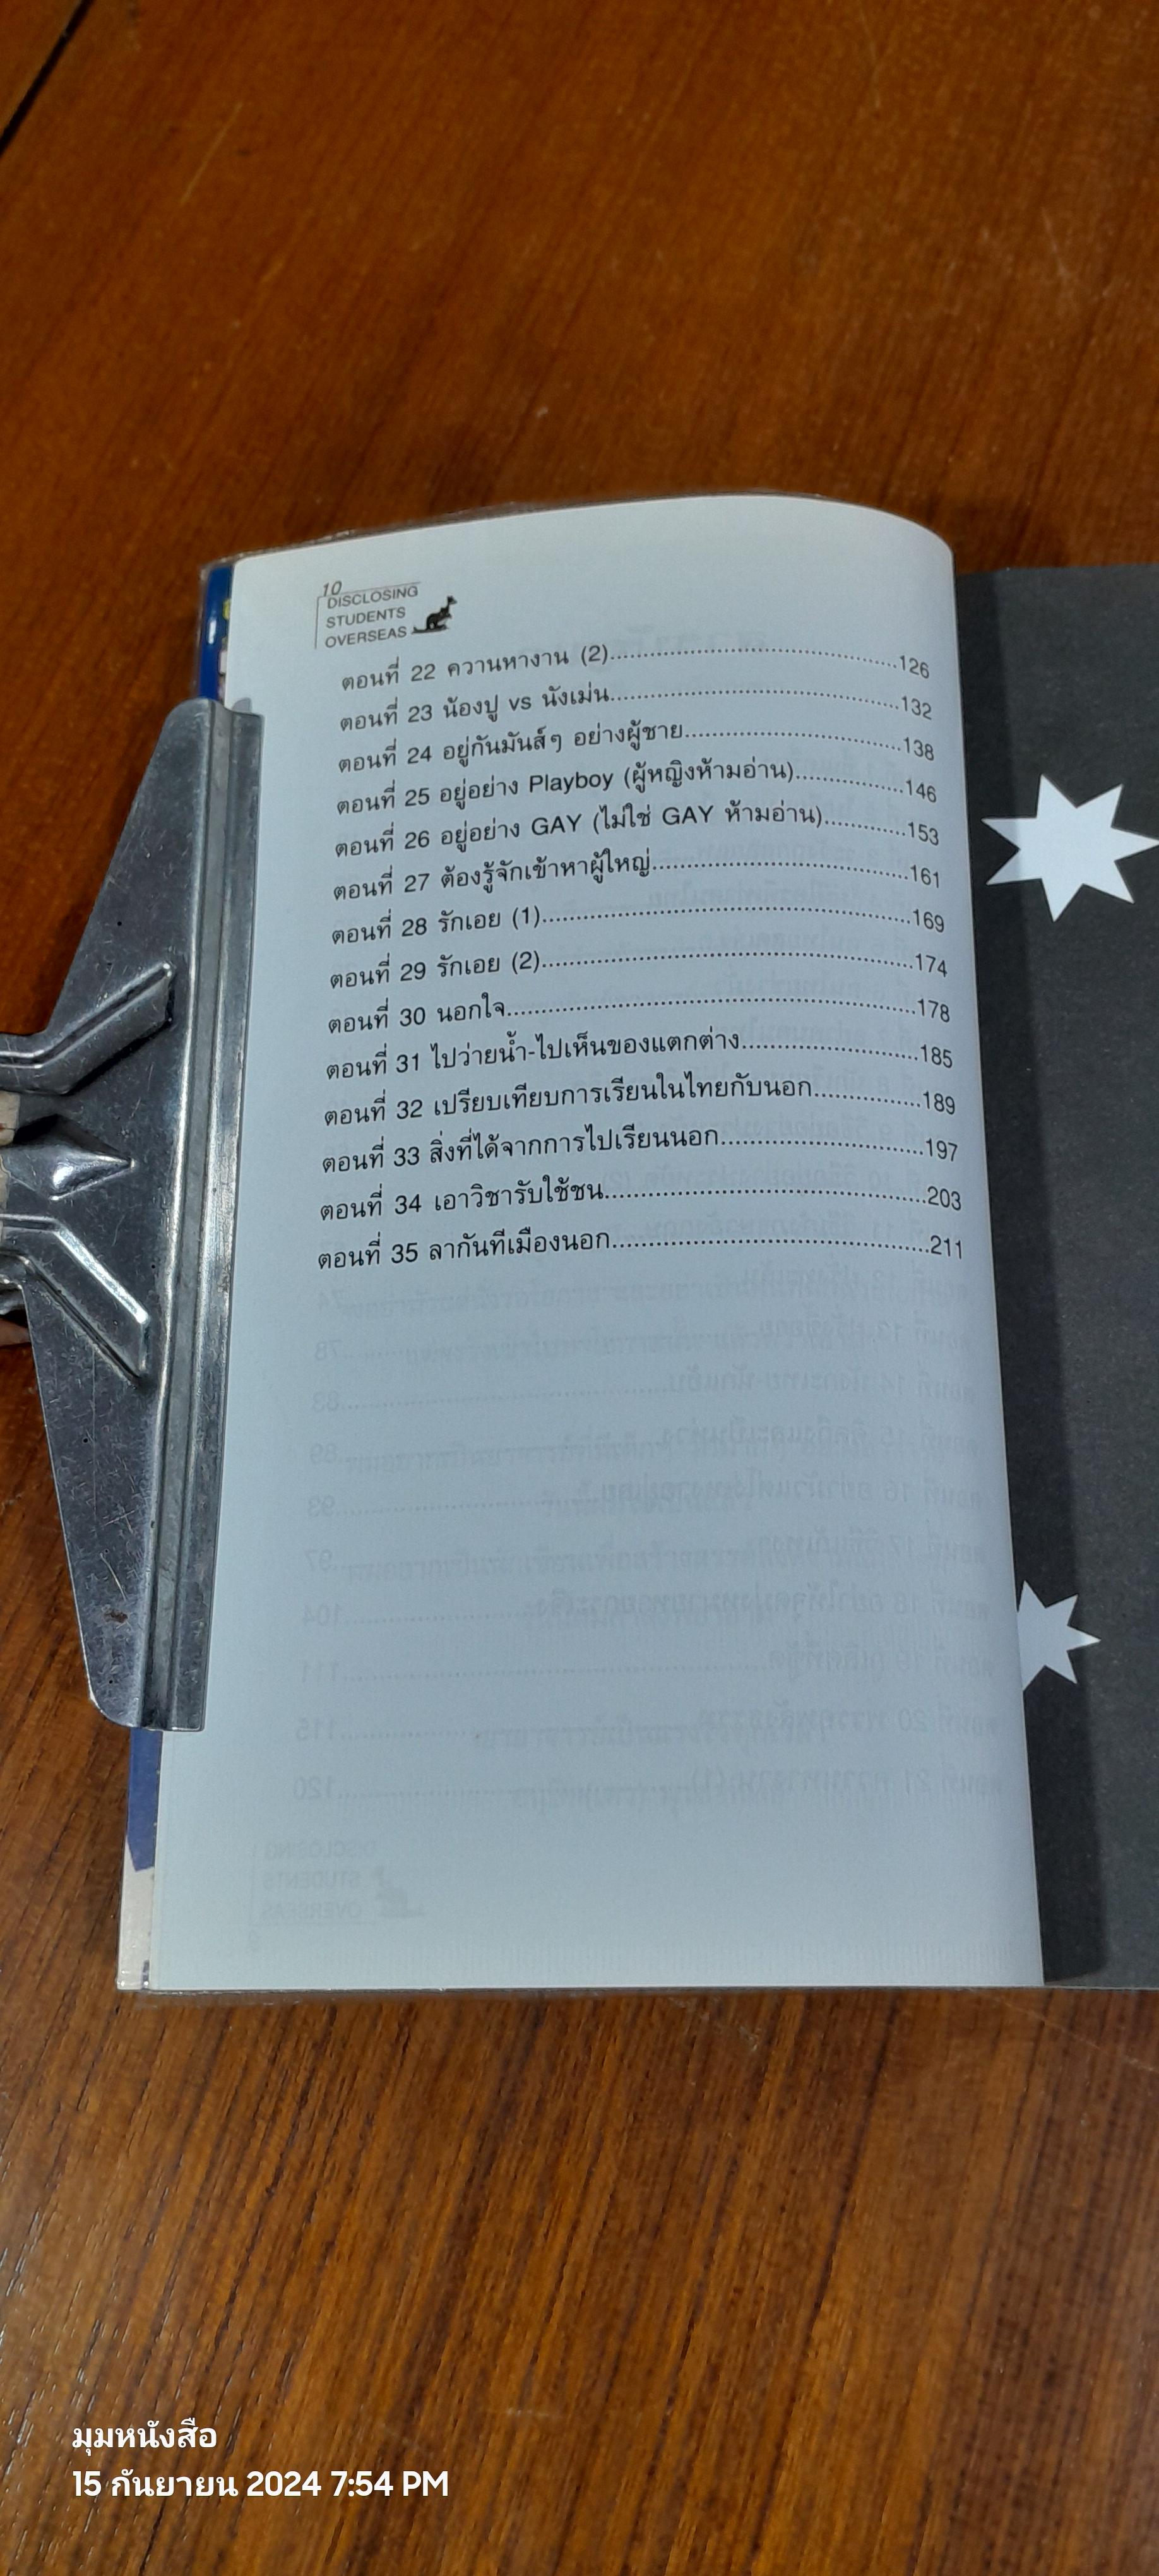 10
DISCLOSING
STUDENTS
OVERSEAS
ตอนที่ 22 ควานหางาน (2)...............................................126
ตอนที่ 23 น้องปู vs นังเม่น...............................................132
ตอนที่ 24 อยู่กันมันส์ๆ อย่างผู้ชาย...................................138
ตอนที่ 25 อยู่อย่าง Playboy (ผู้หญิงห้ามอ่าน)..................146
ตอนที่ 26 อยู่อย่าง GAY (ไม่ใช่ GAY ห้ามอ่าน)..............153
ตอนที่ 27 ต้องรู้จักเข้าหาผู้ใหญ่.........................................161
ตอนที่ 28 รักเอย (1)..........................................................169
ตอนที่ 29 รักเอย (2)..........................................................174
ตอนที่ 30 นอกใจ................................................................178
ตอนที่ 31 ไปว่ายน้ำ-ไปเห็นของแตกต่าง...........................185
ตอนที่ 32 เปรียบเทียบการเรียนในไทยกับนอก................189
ตอนที่ 33 สิ่งที่ได้จากการไปเรียนนอก..............................197
ตอนที่ 34 เอาวิชารับใช้ชน................................................203
ตอนที่ 35 ลากันทีเมืองนอก...............................................211
มุมหนังสือ
15 กันยายน 2024 7:54 PM